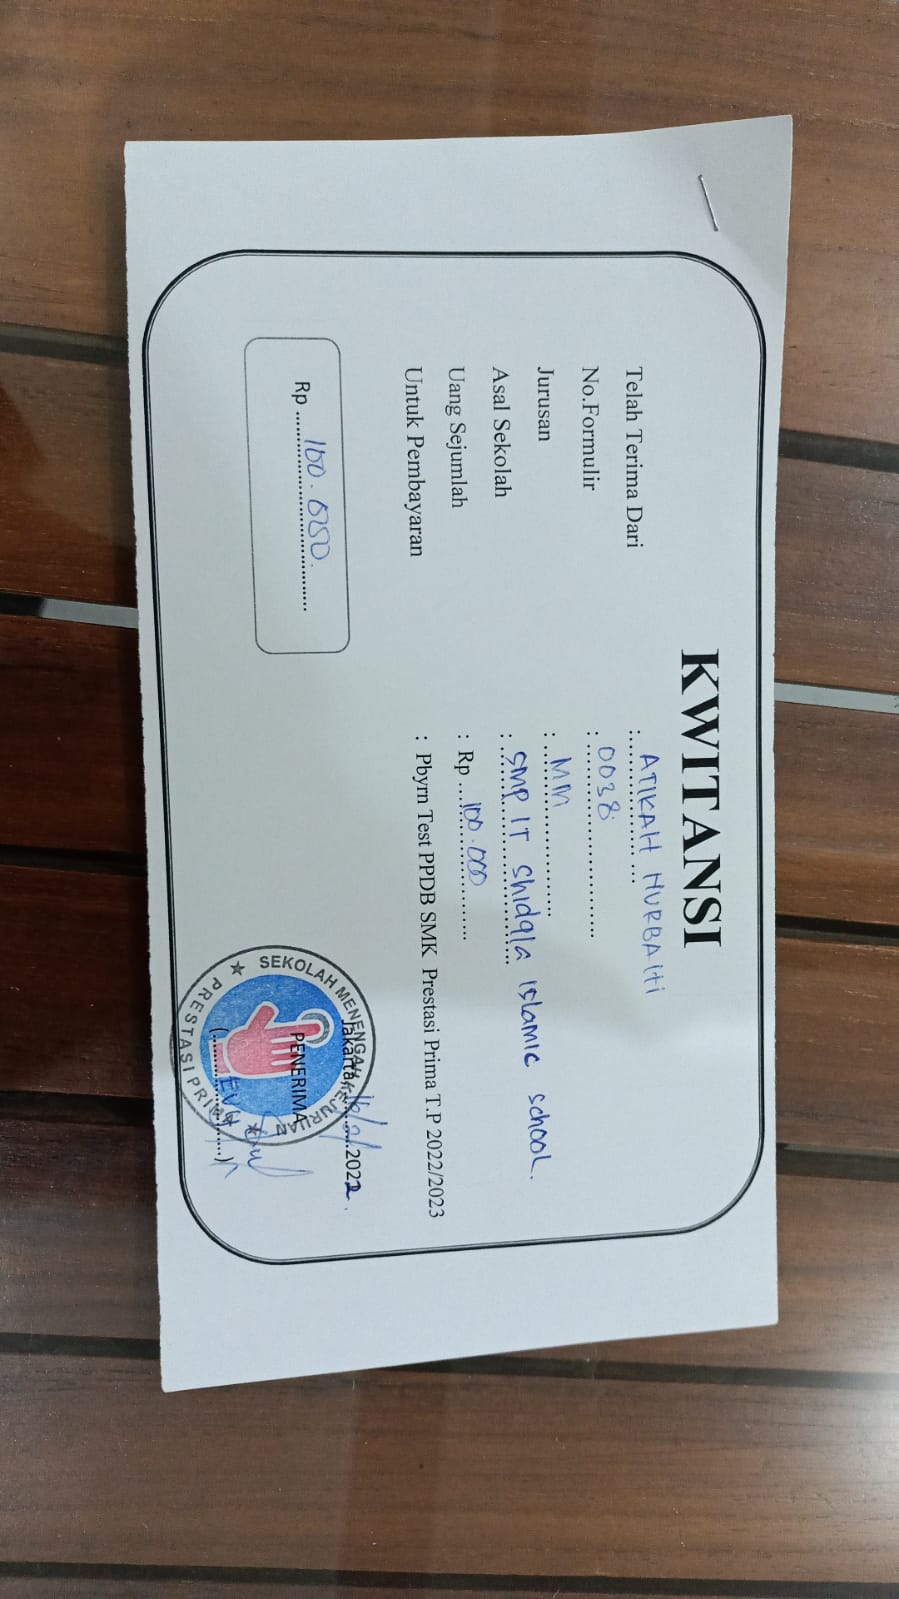 KWITANSI
Telah Terima Dari : ATIKAH NURBAITI
No.Formulir : 0038
Jurusan : MM
Asal Sekolah : SMP IT Shidqia Islamic School.
Uang Sejumlah : Rp 100.000
Untuk Pembayaran : Pbyrn Test PPDB SMK Prestasi Prima T.P 2022/2023
Jakarta, 16/2/2022.
Rp 100.000.
PENERIMA
(EVY)
SEKOLAH MENENGAH KEJURUAN
PRESTASI PRIMA